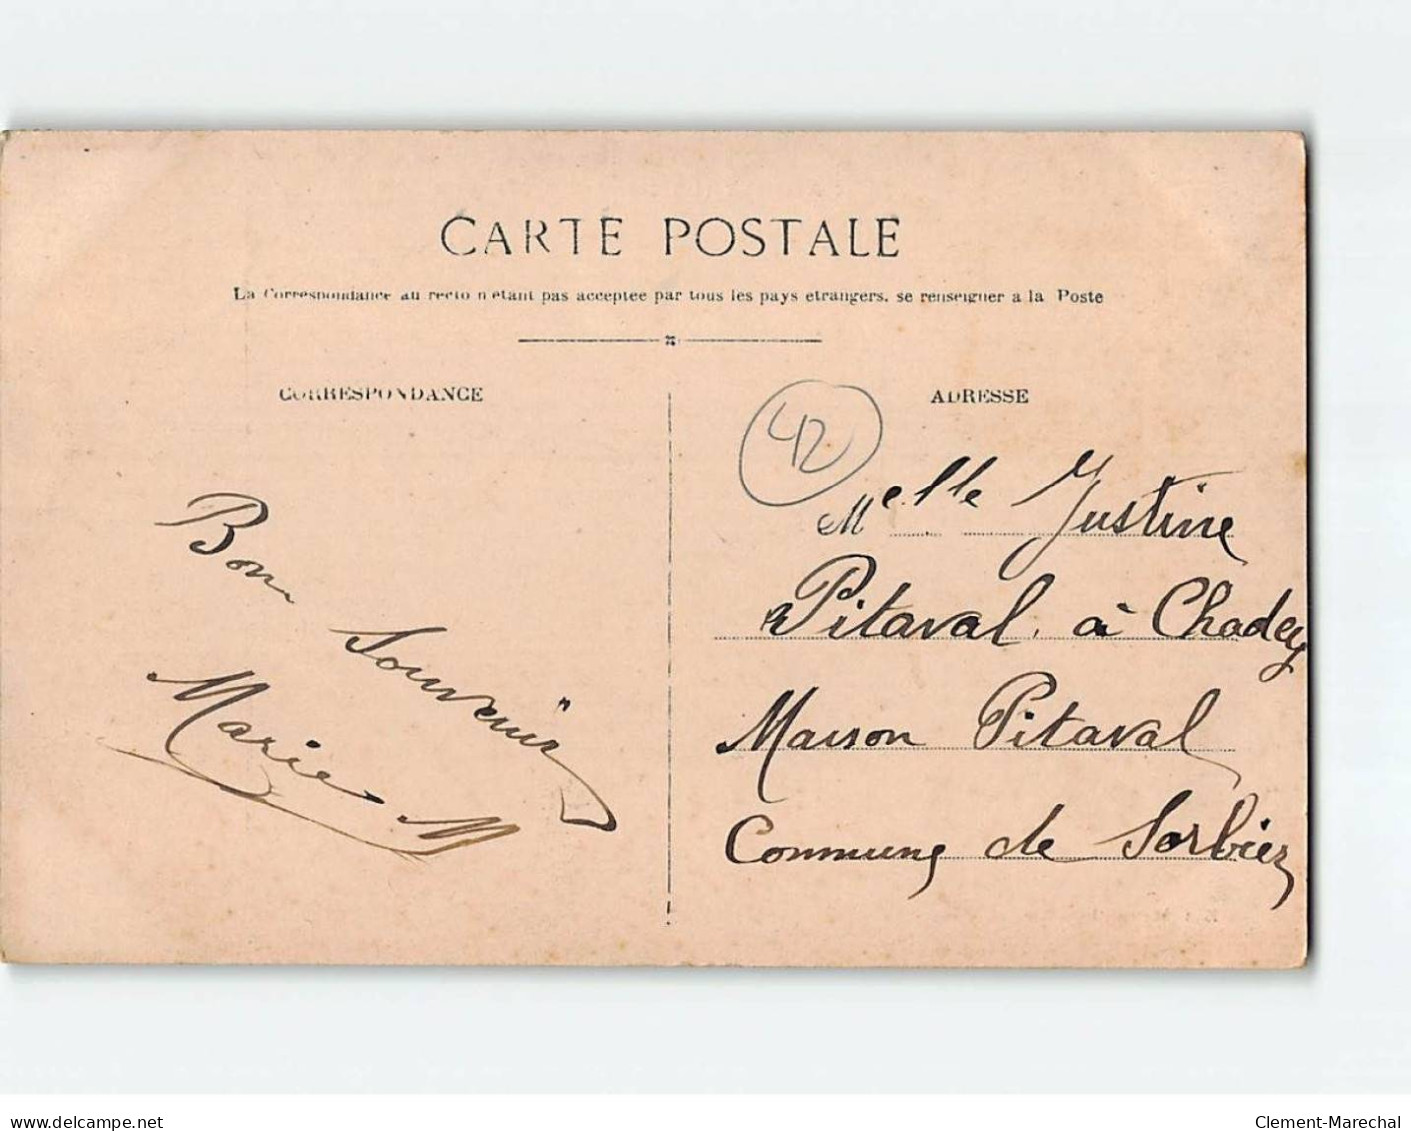 CARTE POSTALE
La Correspondance au recto n'étant pas acceptée par tous les pays étrangers, se renseigner à la Poste
CORRESPONDANCE
Bon
Souvenir
Marie M
ADRESSE
42
Melle Justine
Pitaval à Chadey
Maison Pitaval
Commune de Sorbiez
delcampe.net
Clement-Marechal